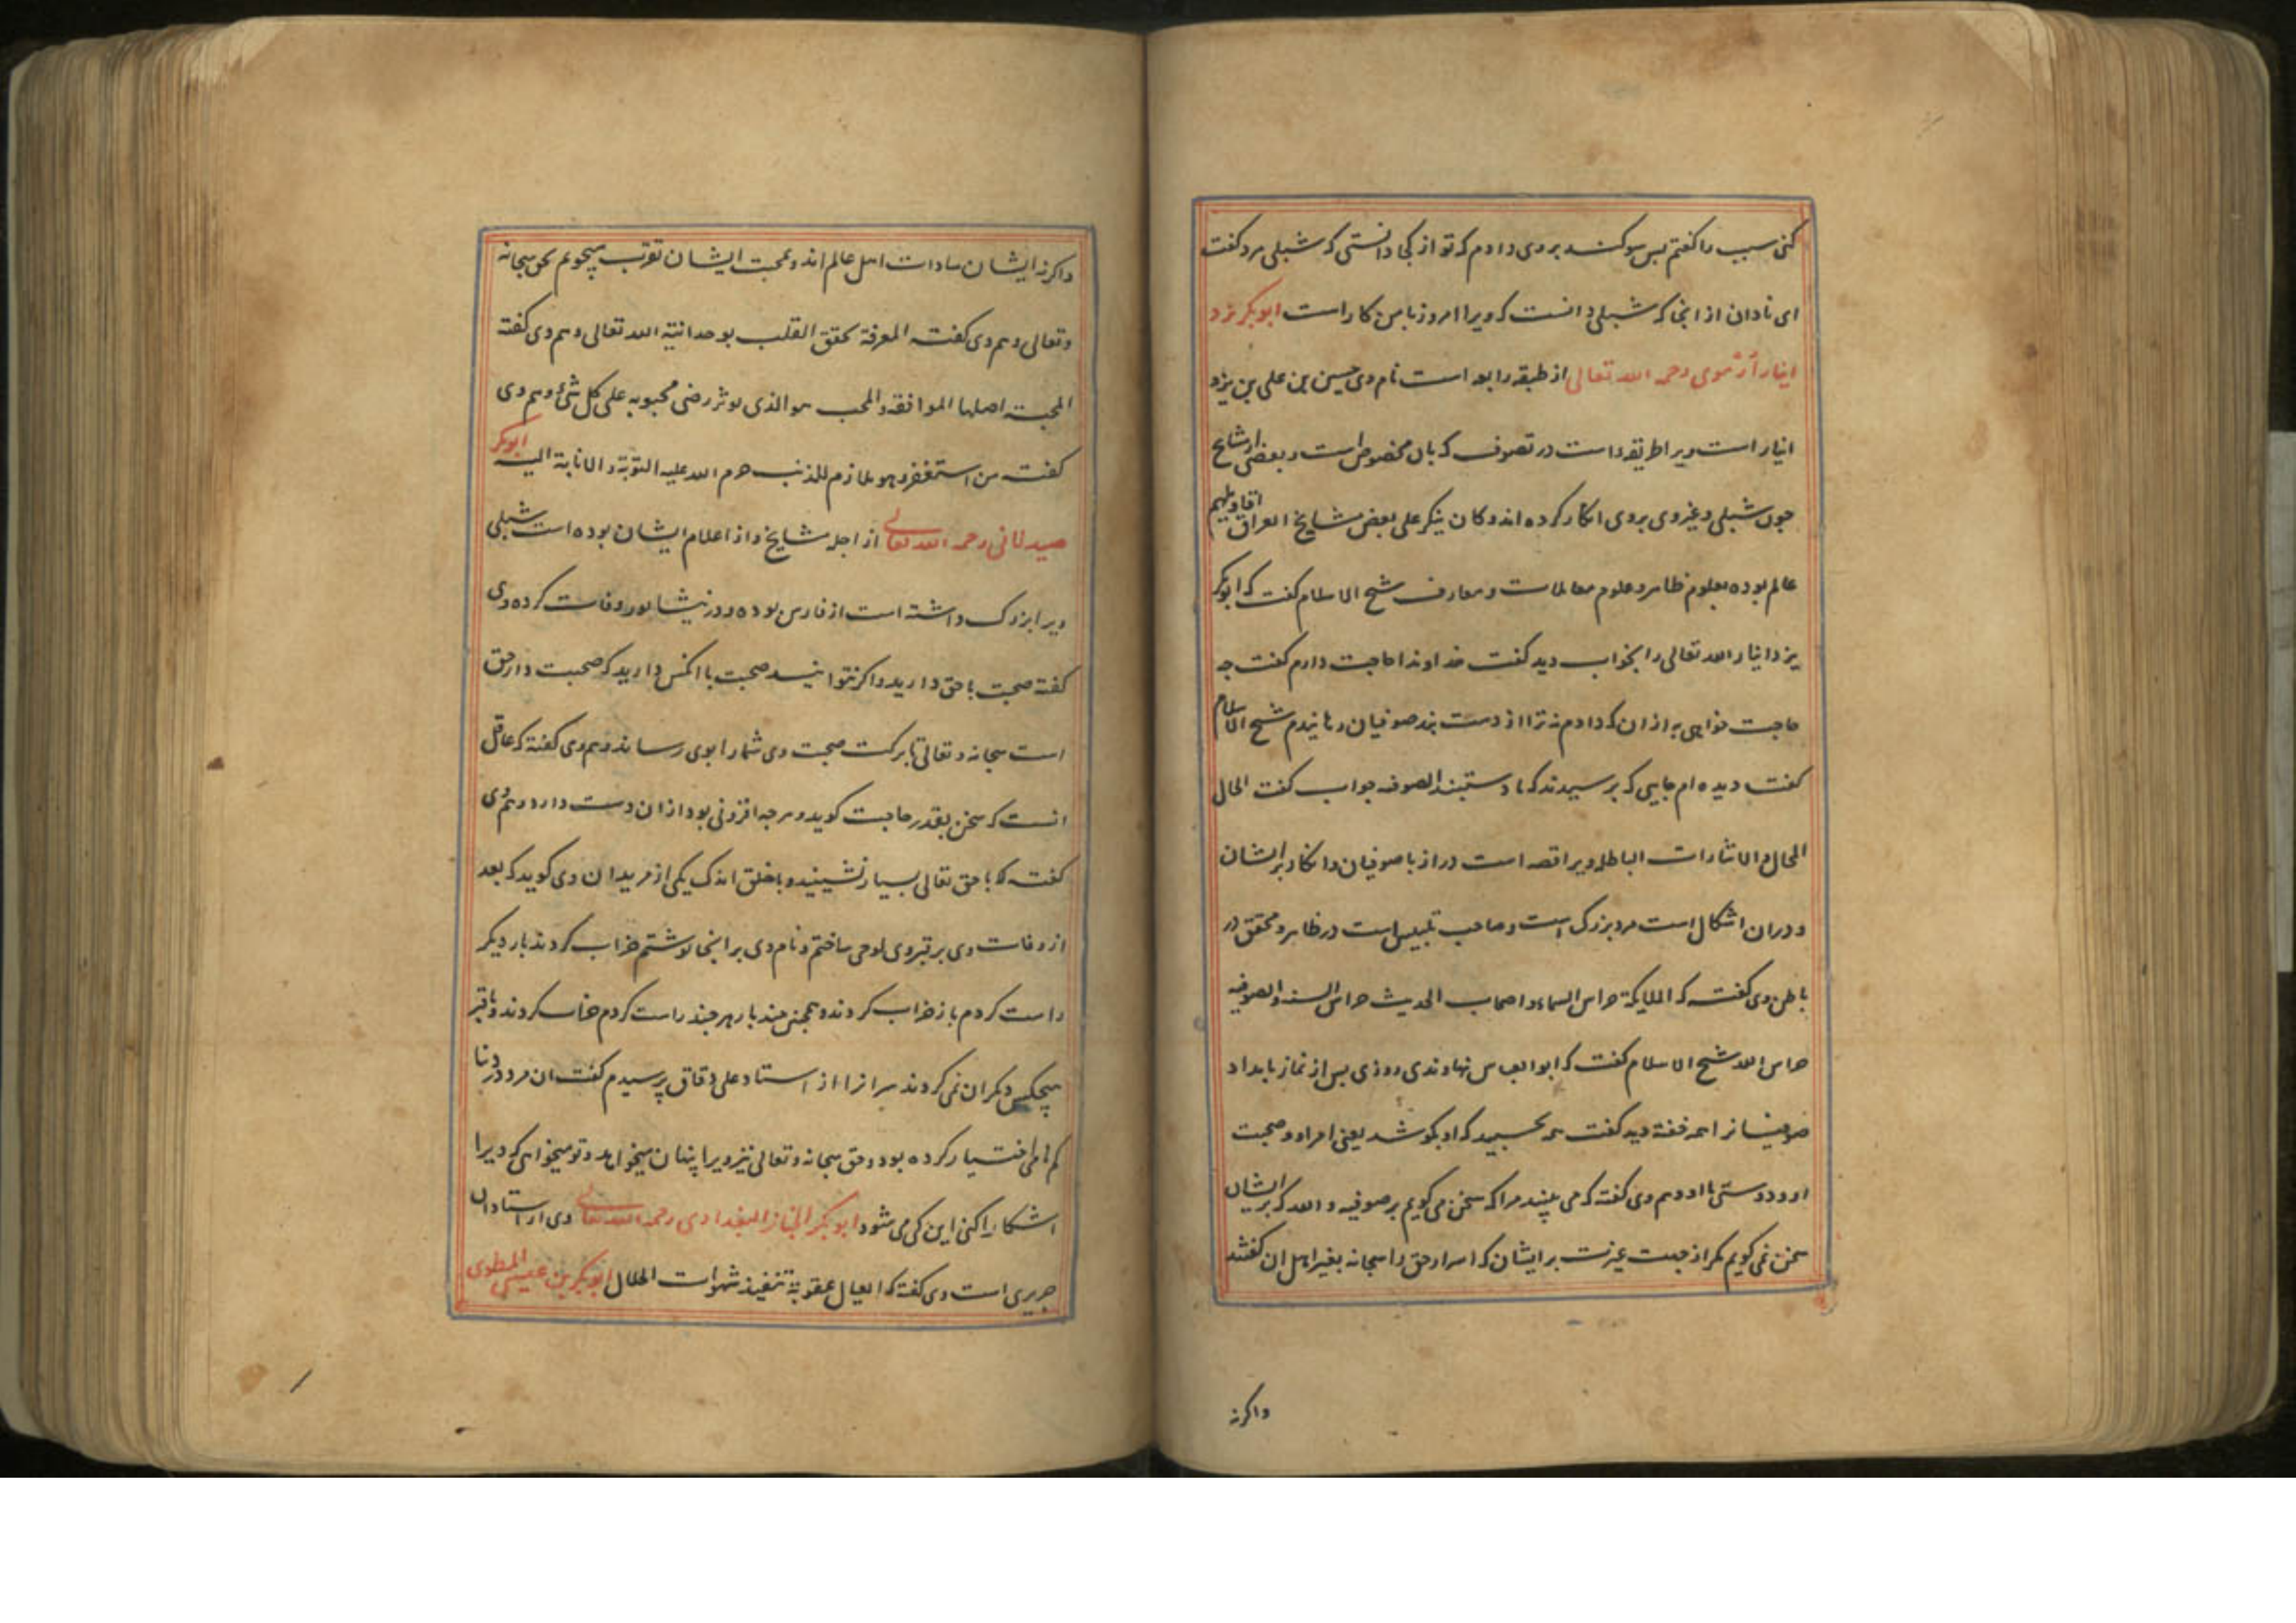 کنی سبب را کفتم بس سوکند بروی دادم که تو از کجا دانستی که شبلی مرد کفت
ای نادان از انجا که شبلی دانست که ویرا امروز با من کار است ابوبکر یزد
انیار ارموی رحمه الله تعالی از طبقه رابعه است نام وی حسین بن علی بن یزد
انیار است ویرا طریقه است در تصوف که بان مخصوص است و بعضی از مشایخ
جون شبلی و غیر وی بروی انکار کرده اند و کان ینکر علی بعض مشایخ العراق اقاویلهم
عالم بوده بعلوم ظاهر و علوم معاملات و معارف شیخ الاسلام کفت که ابوبکر
یزدانیار الله تعالی را بخواب دید کفت خداوندا حاجت دارم کفت چه
حاجت خواهی به از ان که دادم نه ترا از دست بند صوفیان رهانیدم شیخ الاسلام
کفت دیده ام جایی که برسیدند که ما دستبند الصوف جواب کفت الحال
المحال و الاشارات الباطل ویرا قصه است دراز با صوفیان و انکار بر ایشان
و دران اشکال است مرد بزرک است و صاحب تلبیس است در ظاهر و محقق در
باطن وی کفت که الملایکة حراس السماء و اصحاب الحدیث حراس السنه و الصوفیه
حراس الله شیخ الاسلام کفت که ابو العباس نهاوندی روزی بس از نماز بامداد
صوفیان را همه خفته دید کفت همه بخسبید که او بکوشد یعنی امراد و صحبت
او و دوستی با او و هم وی کفته که می بینید مرا که سخن می کویم بر صوفیه و الله که بر ایشان
سخن نمی کویم مکر از جهت غیرت بر ایشان که اسرار حق را سبحانه بغیر اهل ان کفتند
واکرنه
واکرنه ایشان سادات اهل عالم اند و بمحبت ایشان تقرب میجویم بحق سبحانه
وتعالی و هم وی کفت المعرفة تحقق القلب بوحدانیة الله تعالی و هم وی کفته
المحبته اصلها الموافقه و المحب هو الذی یوثر رضی محبوبه علی کل شئ و هم وی
کفت من استغفر و هو ملازم للذنب حرم الله علیه التوبة و الانابة الیه ابوبکر
صیدلانی رحمه الله تعالی از اجله مشایخ و از اعلام ایشان بوده است شبلی
ویرا بزرک داشته است از فارس بوده و در نیشابور وفات کرده وی
کفته صحبت با حق دارید واکر نتوانید صحبت با انکس دارید که صحبت دار حق
است سبحانه و تعالی تا برکت صحبت وی شما را بوی رساند و هم وی کفته که عاقل
انست که سخن بقدر حاجت کوید و هر جه افزونی بود ازان دست دارد و هم وی
کفت که با حق تعالی بسیار نشینید و با خلق اندک یکی از مریدان وی کوید که بعد
از وفات وی بر قبر وی لوحی ساختم و نام وی بر انجا نوشتم خراب کردند بار دیکر
راست کردم باز خراب کردند و همجنین جند بار هر جند راست کردم خراب کردند و با قبر
هیجکس دیکر ان نمی کردند سر انرا از استاد علی دقاق پرسیدم کفت ان مرد در دنیا
کم نامی اختیار کرده بود و حق سبحانه و تعالی نیز ویرا پنهان میخواهد و تو میخواهی که ویرا
اشکارا کنی این کی می شود ابوبکر الخباز البغدادی رحمه الله تعالی وی از استادان
جریری است وی کفته که العیال عقوبة تنفیذ شهوات الحلال ابوبکر بن عیسی المطوعی